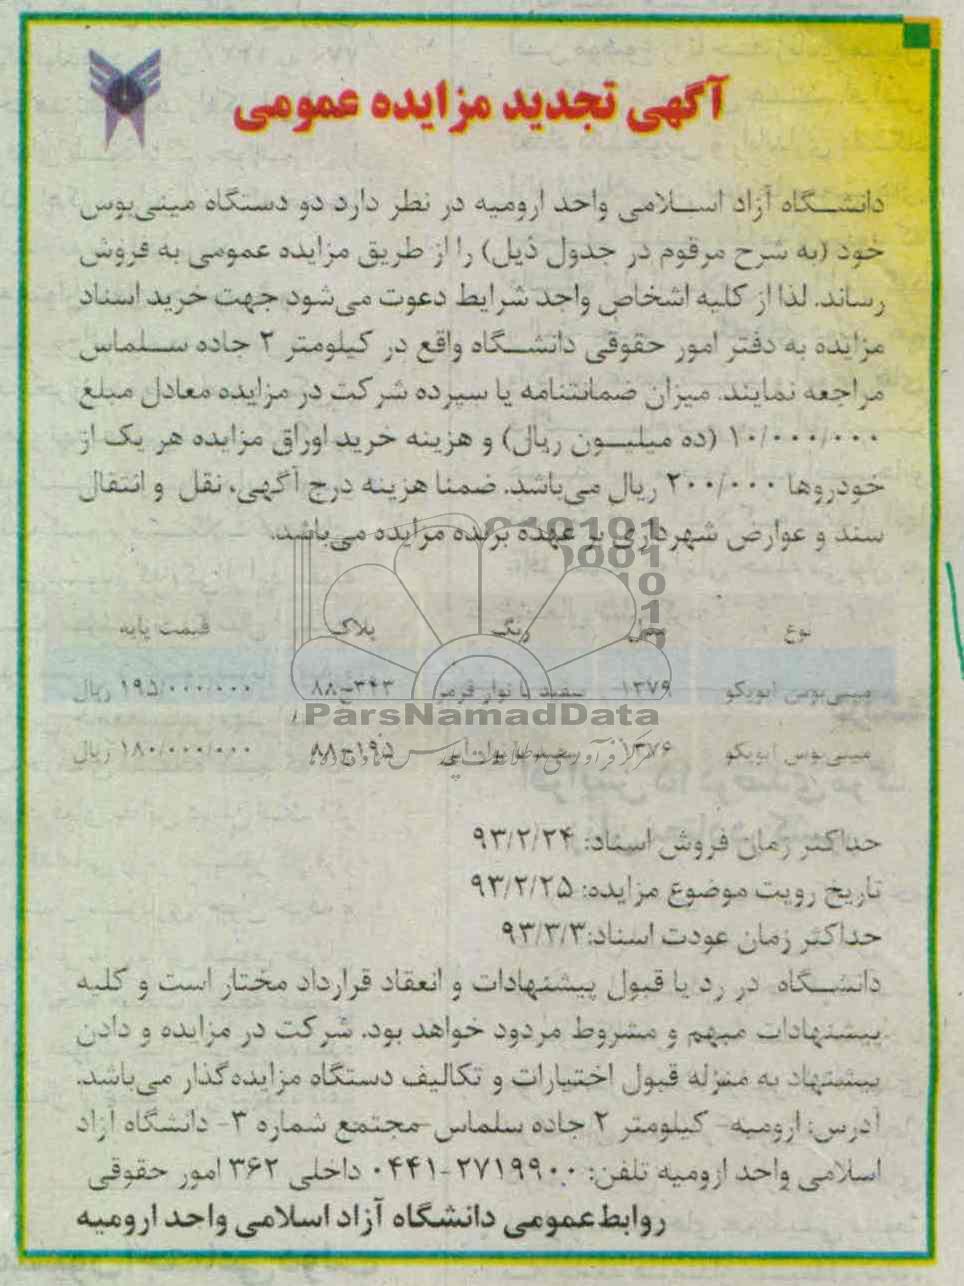 آگهی تجدید مزایده عمومی
دانشگاه آزاد اسلامی واحد ارومیه در نظر دارد دو دستگاه مینی‌بوس
خود (به شرح مرقوم در جدول ذیل) را از طریق مزایده عمومی به فروش
رساند. لذا از کلیه اشخاص واجد شرایط دعوت می‌شود جهت خرید اسناد
مزایده به دفتر امور حقوقی دانشگاه واقع در کیلومتر ۲ جاده سلماس
مراجعه نمایند. میزان ضمانتنامه یا سپرده شرکت در مزایده معادل مبلغ
۱۰/۰۰۰/۰۰۰ (ده میلیون ریال) و هزینه خرید اوراق مزایده هر یک از
خودروها ۲۰۰/۰۰۰ ریال می‌باشد. ضمنا هزینه درج آگهی، نقل و انتقال
سند و عوارض شهرداری بر عهده برنده مزایده می‌باشد.
نوع مدل رنگ پلاک قیمت پایه
مینی‌بوس ایویکو ۱۳۷۹ سفید با نوار قرمز ۸۸-۳۴۳ ۱۹۵/۰۰۰/۰۰۰ ریال
ParsNamadData
مینی‌بوس ایویکو ۱۳۷۶ سفید با نوار آبی ۱۸۰/۰۰۰/۰۰۰ ریال
حداکثر زمان فروش اسناد: ۹۳/۲/۲۴
تاریخ رویت موضوع مزایده: ۹۳/۲/۲۵
حداکثر زمان عودت اسناد: ۹۳/۳/۳
دانشگاه در رد یا قبول پیشنهادات و انعقاد قرارداد مختار است و کلیه
پیشنهادات مبهم و مشروط مردود خواهد بود. شرکت در مزایده و دادن
پیشنهاد به منزله قبول اختیارات و تکالیف دستگاه مزایده گذار می‌باشد.
آدرس: ارومیه- کیلومتر ۲ جاده سلماس-مجتمع شماره ۳- دانشگاه آزاد
اسلامی واحد ارومیه تلفن: ۲۷۱۹۹۰۰-۰۴۴۱ داخلی ۳۶۲ امور حقوقی
روابط عمومی دانشگاه آزاد اسلامی واحد ارومیه